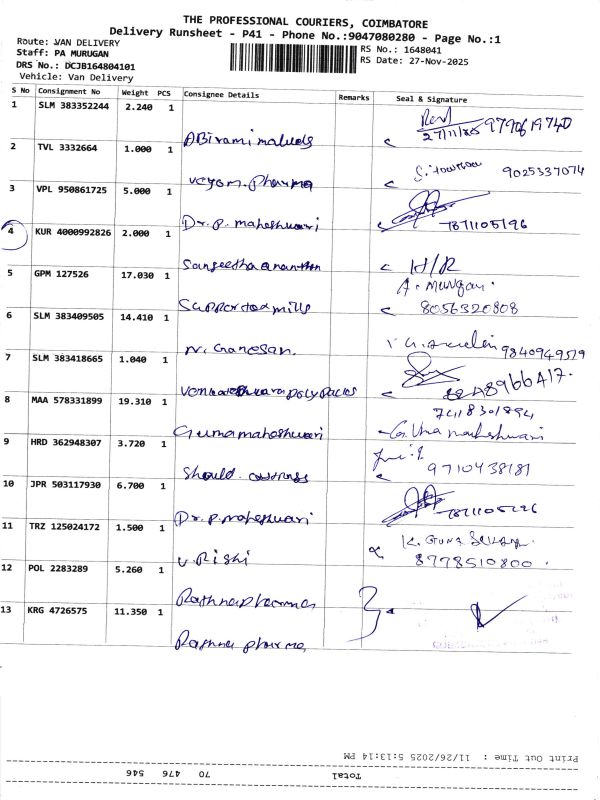 THE PROFESSIONAL COURIERS, COIMBATORE
Delivery Runsheet - P41 - Phone No.:9047080280 - Page No.:1
Route: VAN DELIVERY
Staff: PA MURUGAN
DRS No.: DCJB164804101
Vehicle: Van Delivery
RS No.: 1648041
RS Date: 27-Nov-2025
S No Consignment No Weight PCS Consignee Details Remarks Seal & Signature
1 SLM 383352244 2.240 1 27/11/25
2 TVL 3332664 1.000 1 veyom. Pharma 9025337074
3 VPL 950861725 5.000 1 Dr. P. maheshwari 7871105196
4 KUR 4000992826 2.000 1 Sangeetha H/R
5 GPM 127526 17.030 1 A. Murugan. 8056320808
6 SLM 383409505 14.410 1 N. Ganesan. 9840949519
7 SLM 383418665 1.040 1
8 MAA 578331899 19.310 1 G.umamaheshwari 7418301894 G. Uma maheshwari
9 HRD 362948307 3.720 1 9710438181
10 JPR 503117930 6.700 1 Dr. P. maheshwari
11 TRZ 125024172 1.500 1 V. Rishi 8778510800.
12 POL 2283289 5.260 1 Rathna pharma
13 KRG 4726575 11.350 1 Rathna pharma
Print Out Time : 11/26/2025 5:13:14 PM
Total 70 476 546